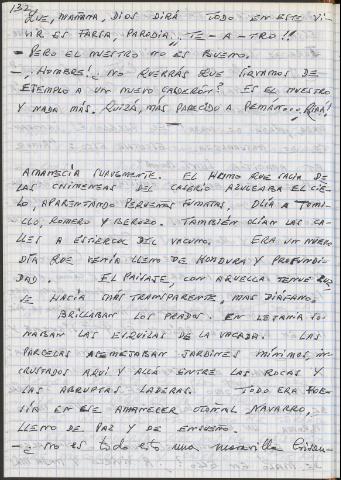 132
QUE, MAÑANA, DIOS DIRÁ. TODO EN ESTE VI-
VIR ES FARSA, PARODIA... TE-A-TRO!!
- PERO EL NUESTRO NO ES BUENO.
- ¡HOMBRE! ¿NO QUERRÁS QUE SIRVAMOS DE
EJEMPLO A UN NUEVO CALDERÓN? ES EL NUESTRO
Y NADA MÁS. QUIZÁ, MÁS PARECIDO A PEMÁN....
AMANECÍA SUAVEMENTE. EL HUMO QUE SALÍA DE
LAS CHIMENEAS DEL CASERÍO AZULEABA EL CIE-
LO, APARENTANDO PEQUEÑAS FUMATAS, OLÍA A TOMI-
LLO, ROMERO Y BEROZO. TAMBIÉN OLÍAN LAS CA-
LLES A ESTIERCOL DEL VACUNO. ERA UN NUEVO
DÍA QUE VENÍA LLENO DE HONDURA Y PROFUNDI-
DAD. EL PAISAJE, CON AQUELLA TENUE LUZ,
SE HACÍA MÁS TRANSPARENTE, MAS DIÁFANO.
BRILLABAN LOS PRADOS. EN LEJANÍA SO-
NABAN LAS ESQUILAS DE LA VACADA. LAS
PARCELAS ASEMEJABAN JARDINES MÍNIMOS, IN-
CRUSTADOS AQUÍ Y ALLÁ ENTRE LAS ROCAS Y
LAS ABRUPTAS LADERAS. TODO ERA POE-
SÍA EN ESE AMANECER OTOÑAL NAVARRO,
LLENO DE PAZ Y DE ENSUEÑO.
- ¿no es todo esto una maravilla